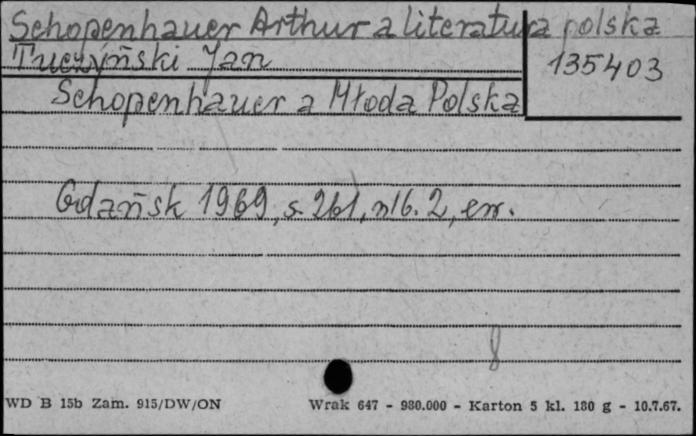 Schopenhauer Arthur a literatura polska
Tuczyński Jan
135403
Schopenhauer a Młoda Polska
Gdańsk 1969, s. 261, nlb. 2, err.
8
WD B 15b Zam. 915/DW/ON Wrak 647 - 980.000 - Karton 5 kl. 180 g - 10.7.67.